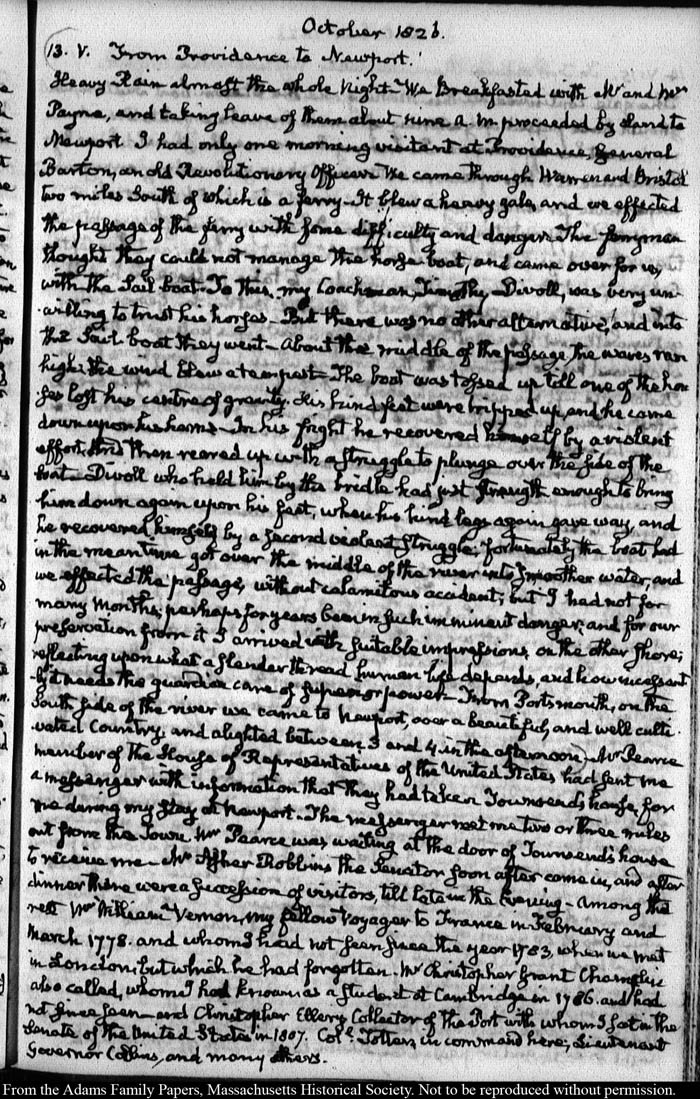 October 1826.
13. V. From Providence to Newport.
Heavy Rain almost the whole Night. We Breakfasted with Mr and Mrs
Payne, and taking leave of them about nine a.m. proceeded by land to
Newport. I had only one morning visitant at Providence, General
Barton, an old Revolutionary Officer. We came through Warren and Bristol
two miles South of which is a ferry. It blew a heavy gale, and we effected
the passage of the ferry with some difficulty and danger. The ferryman
thought they could not manage the horse boat, and came over for us,
with the Sail boat. To this, my Coachman, Timothy Divoll, was very un-
willing to trust his horses. But there was no other alternative, and into
the Sail boat they went. About the middle of the passage the waves ran
high; the wind blew a tempest. The boat was tossed up till one of the hor
ses lost his centre of gravity. His hind feet were tripped up, and he came
down upon his hams. In his fright he recovered himself by a violent
effort, and then reared up with a struggle to plunge over the side of the
boat. Divoll who held him by the bridle had just strength enough to bring
him down again upon his feet, when his hind legs again gave way, and
he recovered himself by a second violent struggle; fortunately the boat had
in the mean time got over the middle of the river into smoother water, and
we effected the passage, without calamitous accident; but I had not for
many Months; perhaps for years been in such imminent danger; and for our
preservation from it I arrived with suitable impressions, on the other shore;
reflecting upon what a slender thread human life depends, and how incessant
ly it needs the guardian care of superior power. From Portsmouth, on the
South side of the river we came to Newport over a beautiful, and well culti
vated Country, and alighted between 3 and 4 in the afternoon. Mr Pearce
member of the House of Representatives of the United States had sent me
a messenger with information that they had taken Townsend's house, for
me during my stay at Newport. The messenger met me two or three miles
out from the Town. Mr Pearce was waiting at the door of Townsend's house
to receive me. Mr Asher Robbins the Senator soon after came in, and after
dinner there were a succession of visitors, till late in the Evening. Among the
rest Mr William Vernon, my fellow Voyager to France in February and
March 1778. and whom I had not seen since the year 1783, when we met
in London, but which he had forgotten. Mr Christopher Grant Champlin
also called, whom I had known as a student at Cambridge in 1786. and had
not since seen—and Christopher Ellery Collector of the Port with whom I sat in the
Senate of the United States in 1807. Coll. Totten, in command here; Lieutenant
Governor Collins, and many others.
From the Adams Family Papers, Massachusetts Historical Society. Not to be reproduced without permission.